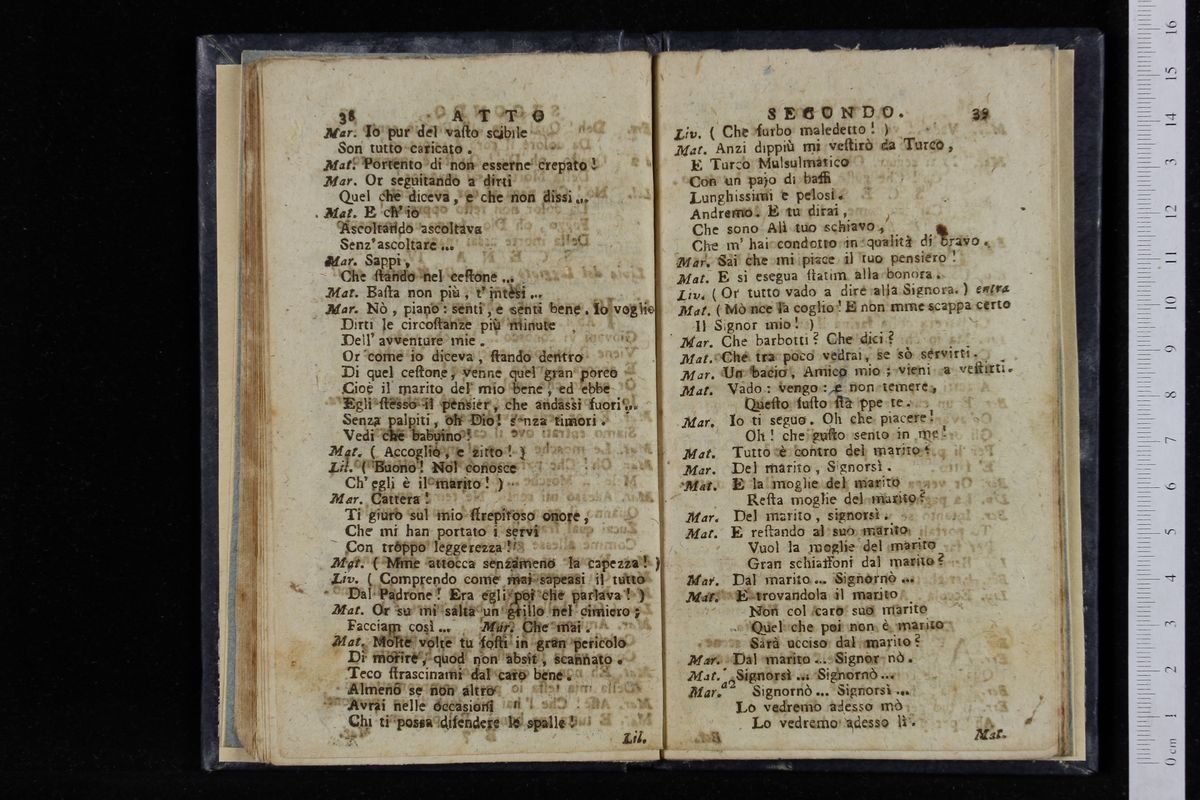 38 ATTO
Mar. Io pur del vaſto scibile
Son tutto caricato.
Mat. Portento di non esserne crepato!
Mar. Or seguitando a dirti
Quel che diceva, e che non dissi...
Mat. E ch'io
Ascoltando ascoltava
Senz'ascoltare...
Mar. Sappi,
Che ſtando nel ceſtone...
Mat. Baſta non più, t'intesi...
Mar. Nò, piano: senti, e senti bene. Io voglio
Dirti le circoſtanze più minute
Dell'avventure mie.
Or come io diceva, ſtando dentro
Di quel ceſtone, venne quel gran porco
Cioè il marito del mio bene, ed ebbe
Egli ſtesso il pensier, che andassi fuori...
Senza palpiti, oh Dio! senza timori.
Vedi che babuino!
Mat. (Accoglio, e zitto!)
Lil. (Buono! Nol conosce
Ch'egli è il marito!)
Mar. Cattera!
Ti giuro sul mio ſtrepitoso onore,
Che mi han portato i servi
Con troppo leggerezza!
Mat. (Mme attocca senzameno la capezza!)
Liv. (Comprendo come mai sapeasi il tutto
Dal Padrone! Era egli poi che parlava!)
Mat. Or su mi salta un grillo nel cimiero;
Facciam così... Mar. Che mai.
Mat. Molte volte tu foſti in gran pericolo
Di morire, quod non absit, scannato.
Teco ſtrascinami dal caro bene.
Almeno se non altro
Avrai nelle occasioni
Chi ti possa difendere le spalle!
Lil.
SECONDO. 39
Liv. (Che furbo maledetto!)
Mat. Anzi dippiù mi veſtirò da Turco,
E Turco Mulsulmatico
Con un pajo di baffi
Lunghissimi e pelosi.
Andremo. E tu dirai,
Che sono Alì tuo schiavo,
Che m'hai condotto in qualità di bravo.
Mar. Sai che mi piace il tuo pensiero!
Mat. E si esegua ſtatim alla bonora.
Liv. (Or tutto vado a dire alla Signora.) entra
Mat. (Mò nce la coglio! E non mme scappa certo
Il Signor mio!)
Mar. Che barbotti? Che dici?
Mat. Che tra poco vedrai, se sò servirti.
Mar. Un bacio, Amico mio; vieni a veſtirti.
Mat. Vado: vengo: e non temere,
Queſto fuſto ſta ppe te.
Mar. Io ti seguo. Oh che piacere!
Oh! che guſto sento in me!
Mat. Tutto è contro del marito?
Mar. Del marito, Signorsì.
Mat. E la moglie del marito
Reſta moglie del marito?
Mar. Del marito, signorsì.
Mat. E reſtando al suo marito
Vuol la moglie del marito
Gran schiaffoni dal marito?
Mar. Dal marito... Signornò...
Mat. E trovandola il marito
Non col caro suo marito
Quel che poi non è marito
Sarà ucciso dal marito?
Mar. Dal marito... Signor nò.
Mat. Signorsì... Signornò...
Mar. a2 Signornò... Signorsì...
Lo vedremo adesso mò
Lo vedremo adesso lì.
Mat.